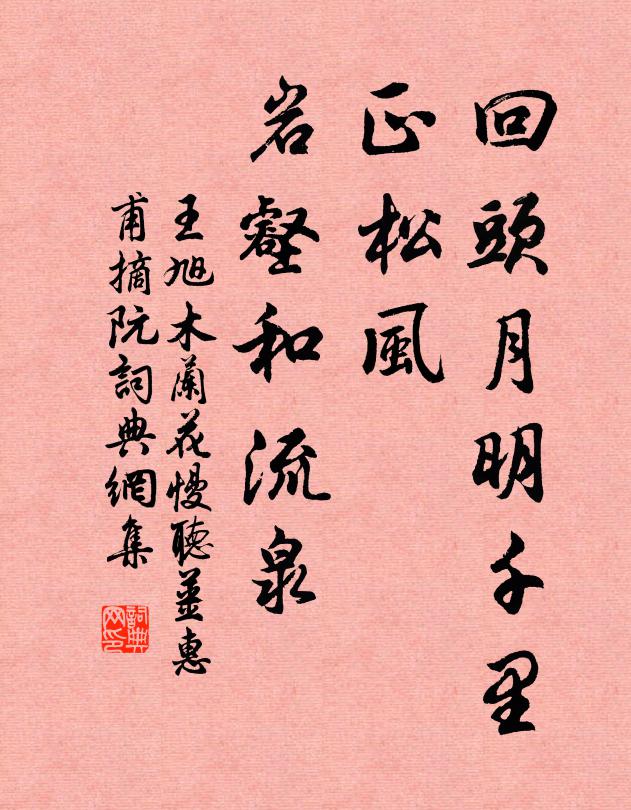 回頭月明千里
正松風
岩壑和流泉
王旭木蘭花慢聽薑惠
甫摘阮詞典網集
詞典
网印